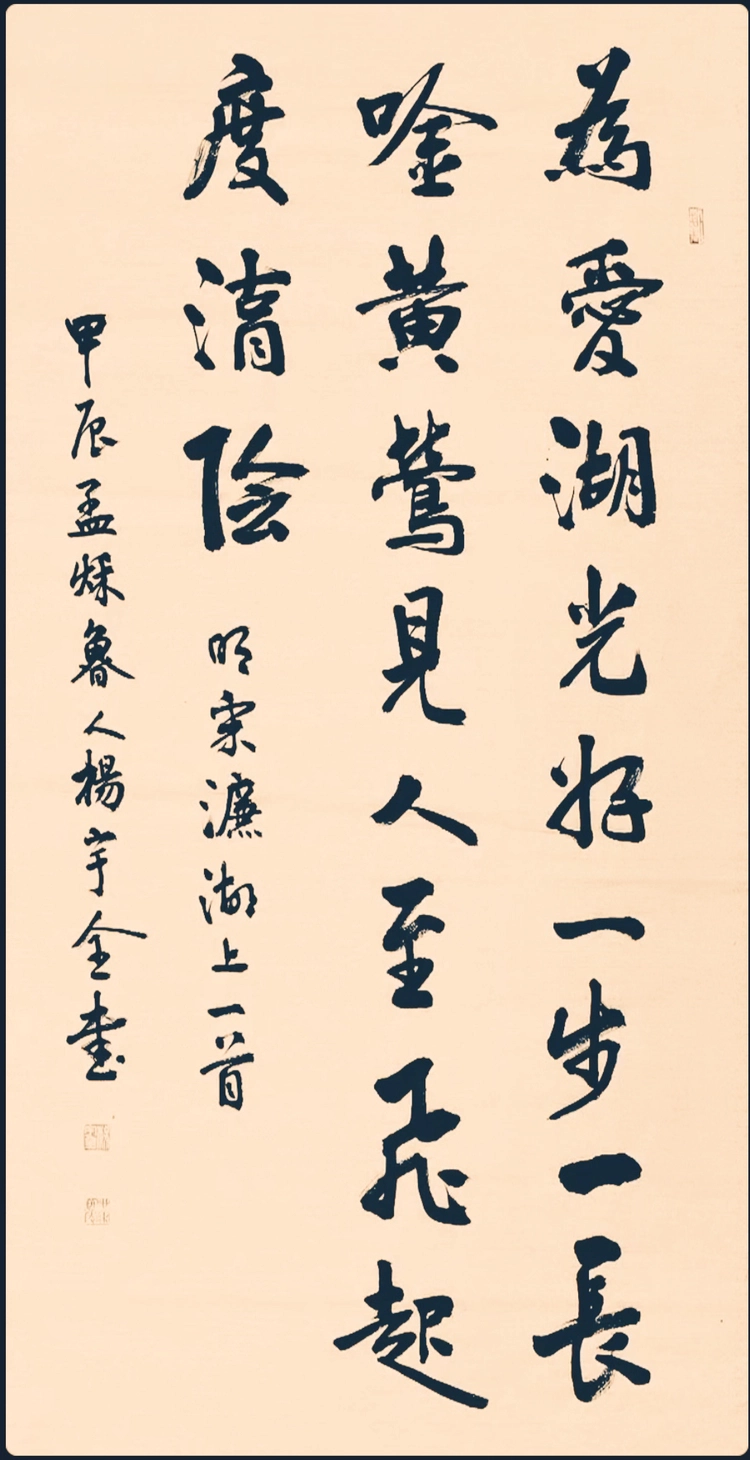 為愛湖光好一步一長
唫黄鶯見人至飛起
度清陰
明宋濂湖上一首
甲辰孟秌魯人楊宇全書